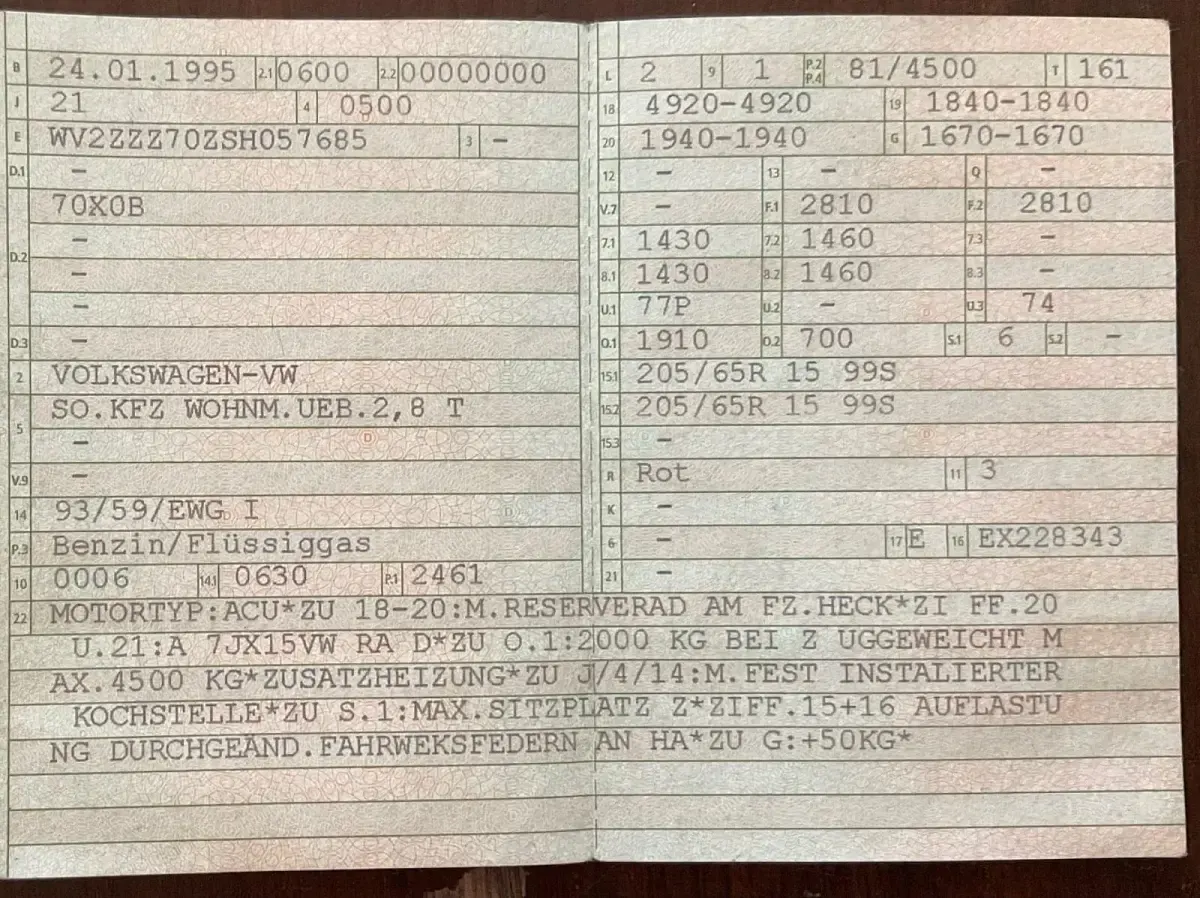 B 24.01.1995 2.1 0600 2.2 00000000
J 21 4 0500
E WV2ZZZ70ZSH057685 3 –
D.1 –
70X0B
–
D.2
–
–
D.3 –
2 VOLKSWAGEN-VW
SO.KFZ WOHNM.UEB.2,8 T
5
–
V.9 –
14 93/59/EWG I
P.3 Benzin/Flüssiggas
10 0006 14.1 0630 P.1 2461
L 2 9 1 P.2 P.4 81/4500 T 161
18 4920-4920 19 1840-1840
20 1940-1940 G 1670-1670
12 – 13 – Q –
V.7 – F.1 2810 F.2 2810
7.1 1430 7.2 1460 7.3 –
8.1 1430 8.2 1460 8.3 –
U.1 77P U.2 – U.3 74
O.1 1910 O.2 700 S.1 6 S.2 –
15.1 205/65R 15 99S
15.2 205/65R 15 99S
15.3 –
R Rot 11 3
K –
6 – 17 E 16 EX228343
21 –
22 MOTORTYP:ACU*ZU 18-20:M.RESERVERAD AM FZ.HECK*ZI FF.20
U.21:A 7JX15VW RA D*ZU O.1:2000 KG BEI Z UGGEWEICHT M
AX.4500 KG*ZUSATZHEIZUNG*ZU J/4/14:M.FEST INSTALIERTER
KOCHSTELLE*ZU S.1:MAX.SITZPLATZ Z*ZIFF.15+16 AUFLASTU
NG DURCHGEÄND.FAHRWEKSFEDERN AN HA*ZU G:+50KG*